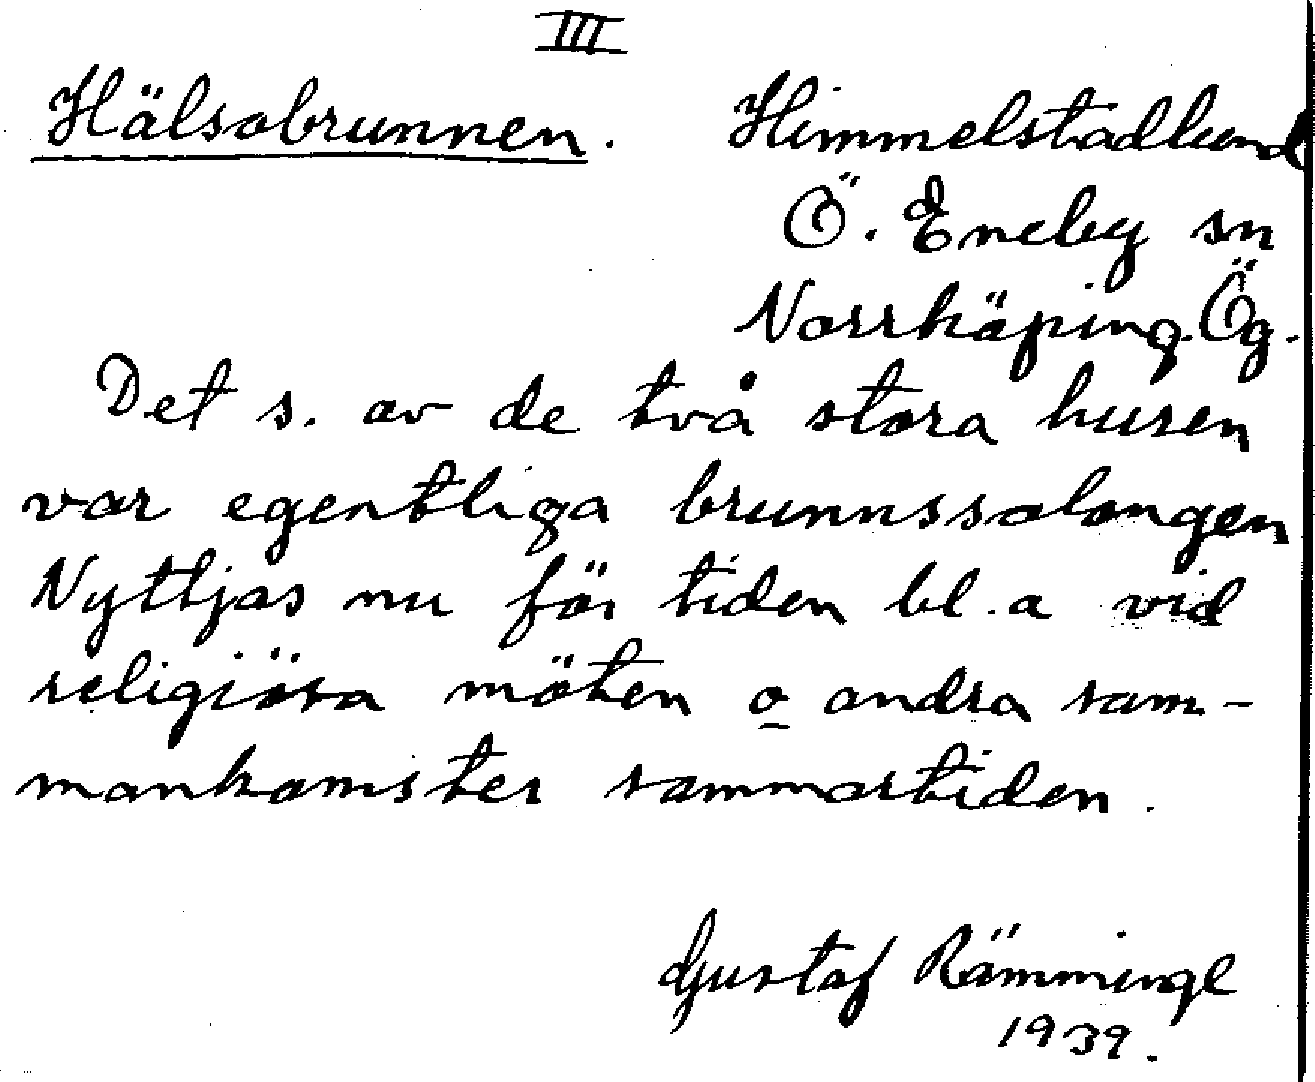 III
Hälsobrunnen. Himmelstadlund
Ö. Eneby sn
Norrköping. Ög.
Det s. av de två stora husen
var egentliga brunnssalongen
Nyttjas nu för tiden bl.a vid
religiösa möten o andra sam-
mankomster sommartiden.
Gustaf Rämmingl
1939.